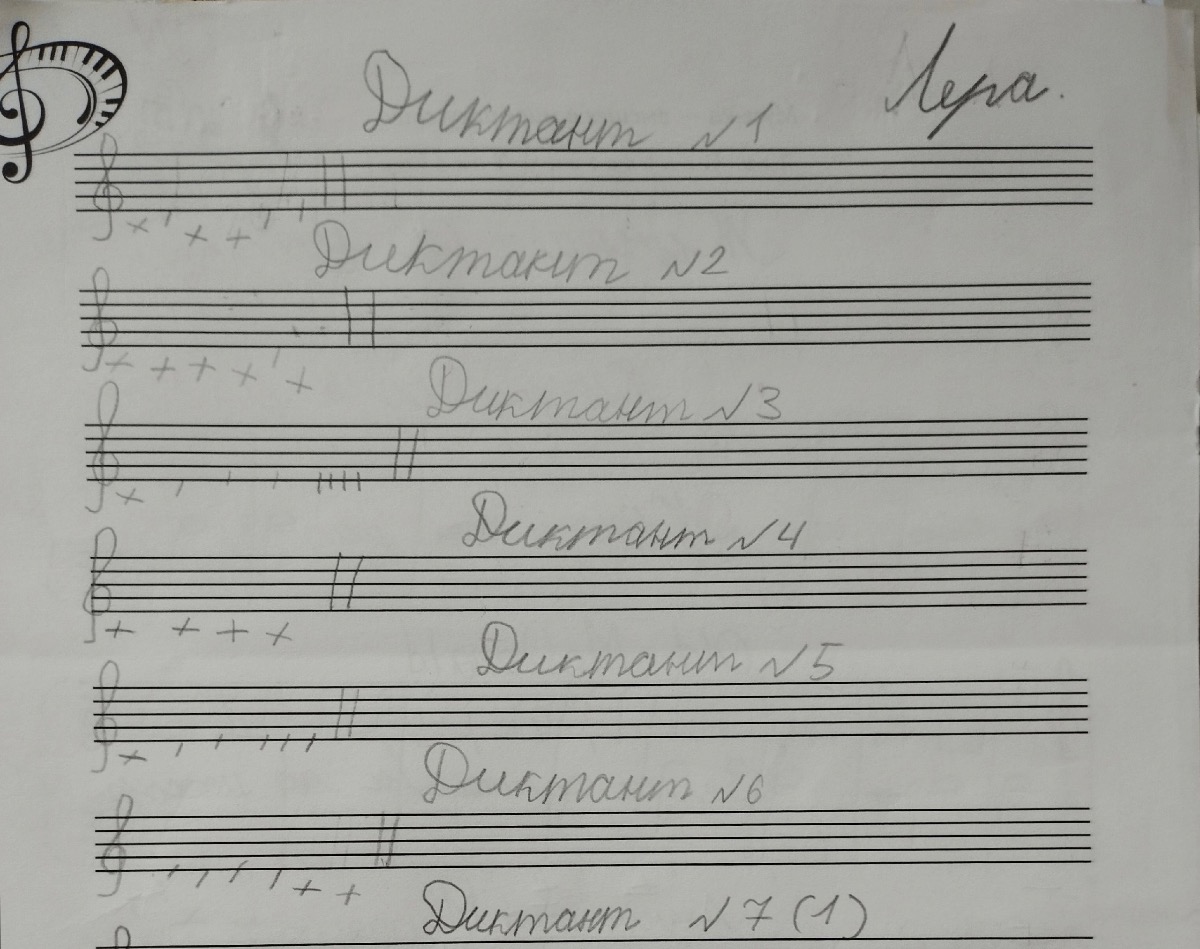 Диктант №1 Лера.
Диктант №2
Диктант №3
Диктант №4
Диктант №5
Диктант №6
Диктант №7(1)